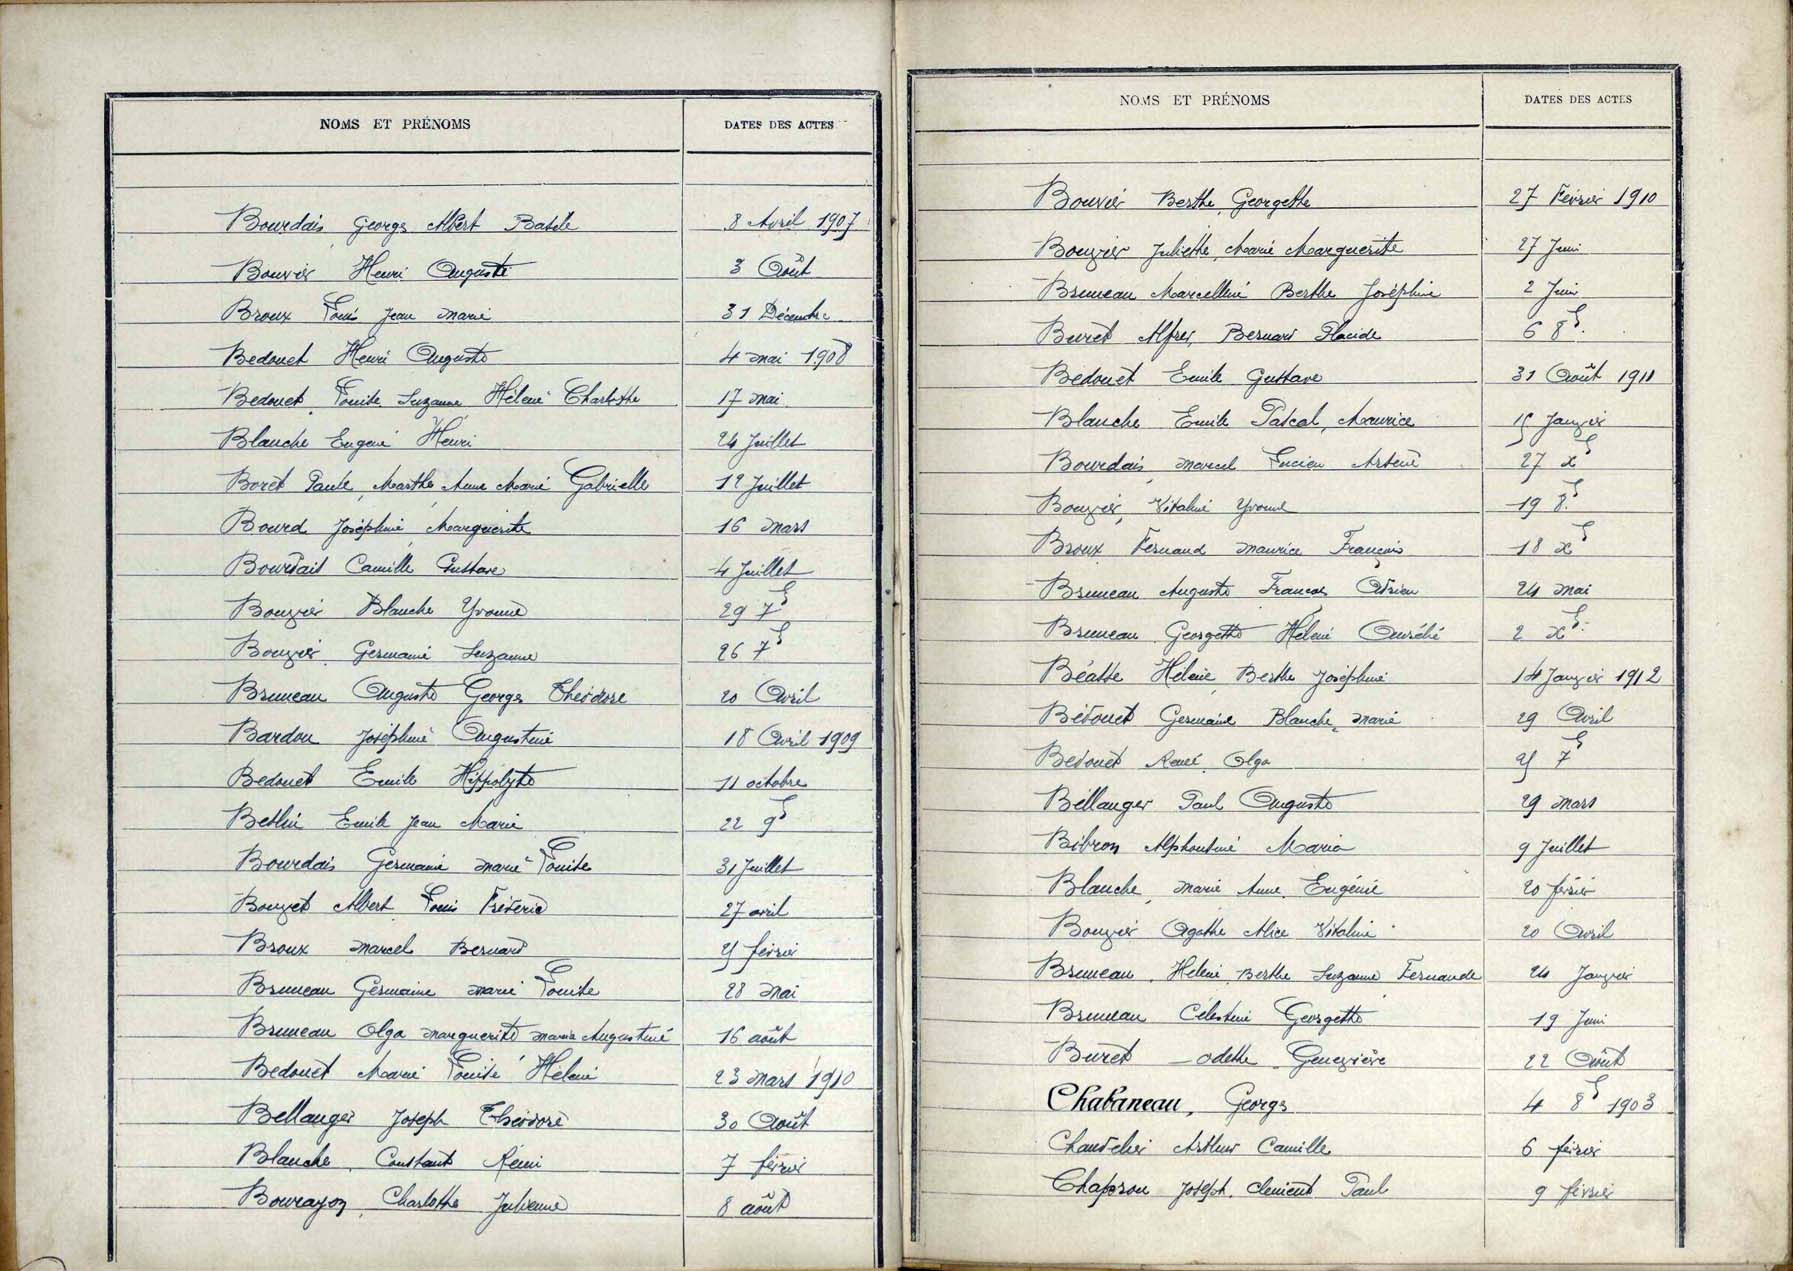 NOMS ET PRÉNOMS DATES DES ACTES
Bourdais Georges Albert 8 Avril 1907
Bouvier Henri Auguste 3 Août
Broux Louis Jean Marie 31 Décembre
Bedouet Henri Auguste 4 Mai 1908
Bedouet Louise Suzanne Hélène Charlotte 17 Mai
Blanche Eugène Henri 24 Juillet
Boret Paule, Marthe Anne Marie Gabrielle 12 Juillet
Bourd Joséphine Marguerite 16 Mars
Bourdais Camille Gustave 4 Juillet
Bouvier Blanche Yvonne 29 7b
Bouvier Germaine Suzanne 26 7b
Bruneau Auguste Georges Théodore 20 Avril
Bardou Joséphine Augustine 18 Avril 1909
Bedouet Emile Hippolyte 11 octobre
Emile Jean Marie 22 9b
Bourdais Germaine Marie Louise 31 Juillet
Bouvet Albert Louis Fréderic 27 avril
Broux Marcel Bernard 25 février
Bruneau Germaine Marie Louise 28 Mai
Bruneau Olga Marguerite Marie Augustine 16 août
Bedouet Marie Louise Hélène 23 Mars 1910
Bellanger Joseph Théodore 30 Août
Blanche, Constant Rémi 7 février
Bourayon, Charlotte Julienne 8 août
NOMS ET PRÉNOMS DATES DES ACTES
Bouvier Berthe, Georgette 27 Février 1910
Bouvier Juliette, Marie Marguerite 27 Juin
Bruneau Marcelline Berthe Joséphine 2 Juin
Buret Alfred, Bernard Placide 6 8b.
Bedouet Emile Gustave 31 Août 1911
Blanche Emile Pascal, Maurice 15 Janvier
Bourdais Marcel Lucien Arsène 27 xb
Bouvier, Vitaline Yvonne 19 8b.
Broux Fernand Maurice François 18 xb
Bruneau Auguste François Adrien 24 Mai
Bruneau Georgette Hélène Aurélie 2 xb.
Béatte Hélène, Berthe Joséphine 14 Janvier 1912
Bédouet Germaine Blanche, Marie 29 Avril
Bédouet René, Olga 25 7b
Béllanger Paul Auguste 29 Mars
Bibron Alphonsine Maria 9 Juillet
Blanche, Marie Anne Eugénie 20 février
Bouvier Agathe Alice Vitaline 20 Avril
Bruneau, Hélène, Berthe Suzanne Fernande 24 Janvier
Bruneau Célestine Georgette 19 Juin
Buret Odette Geneviève 22 Août
Chabaneau, Georges 4 8b 1903
Chandelier Arthur Camille 6 février
Chapron Joseph, Clement Paul 9 février